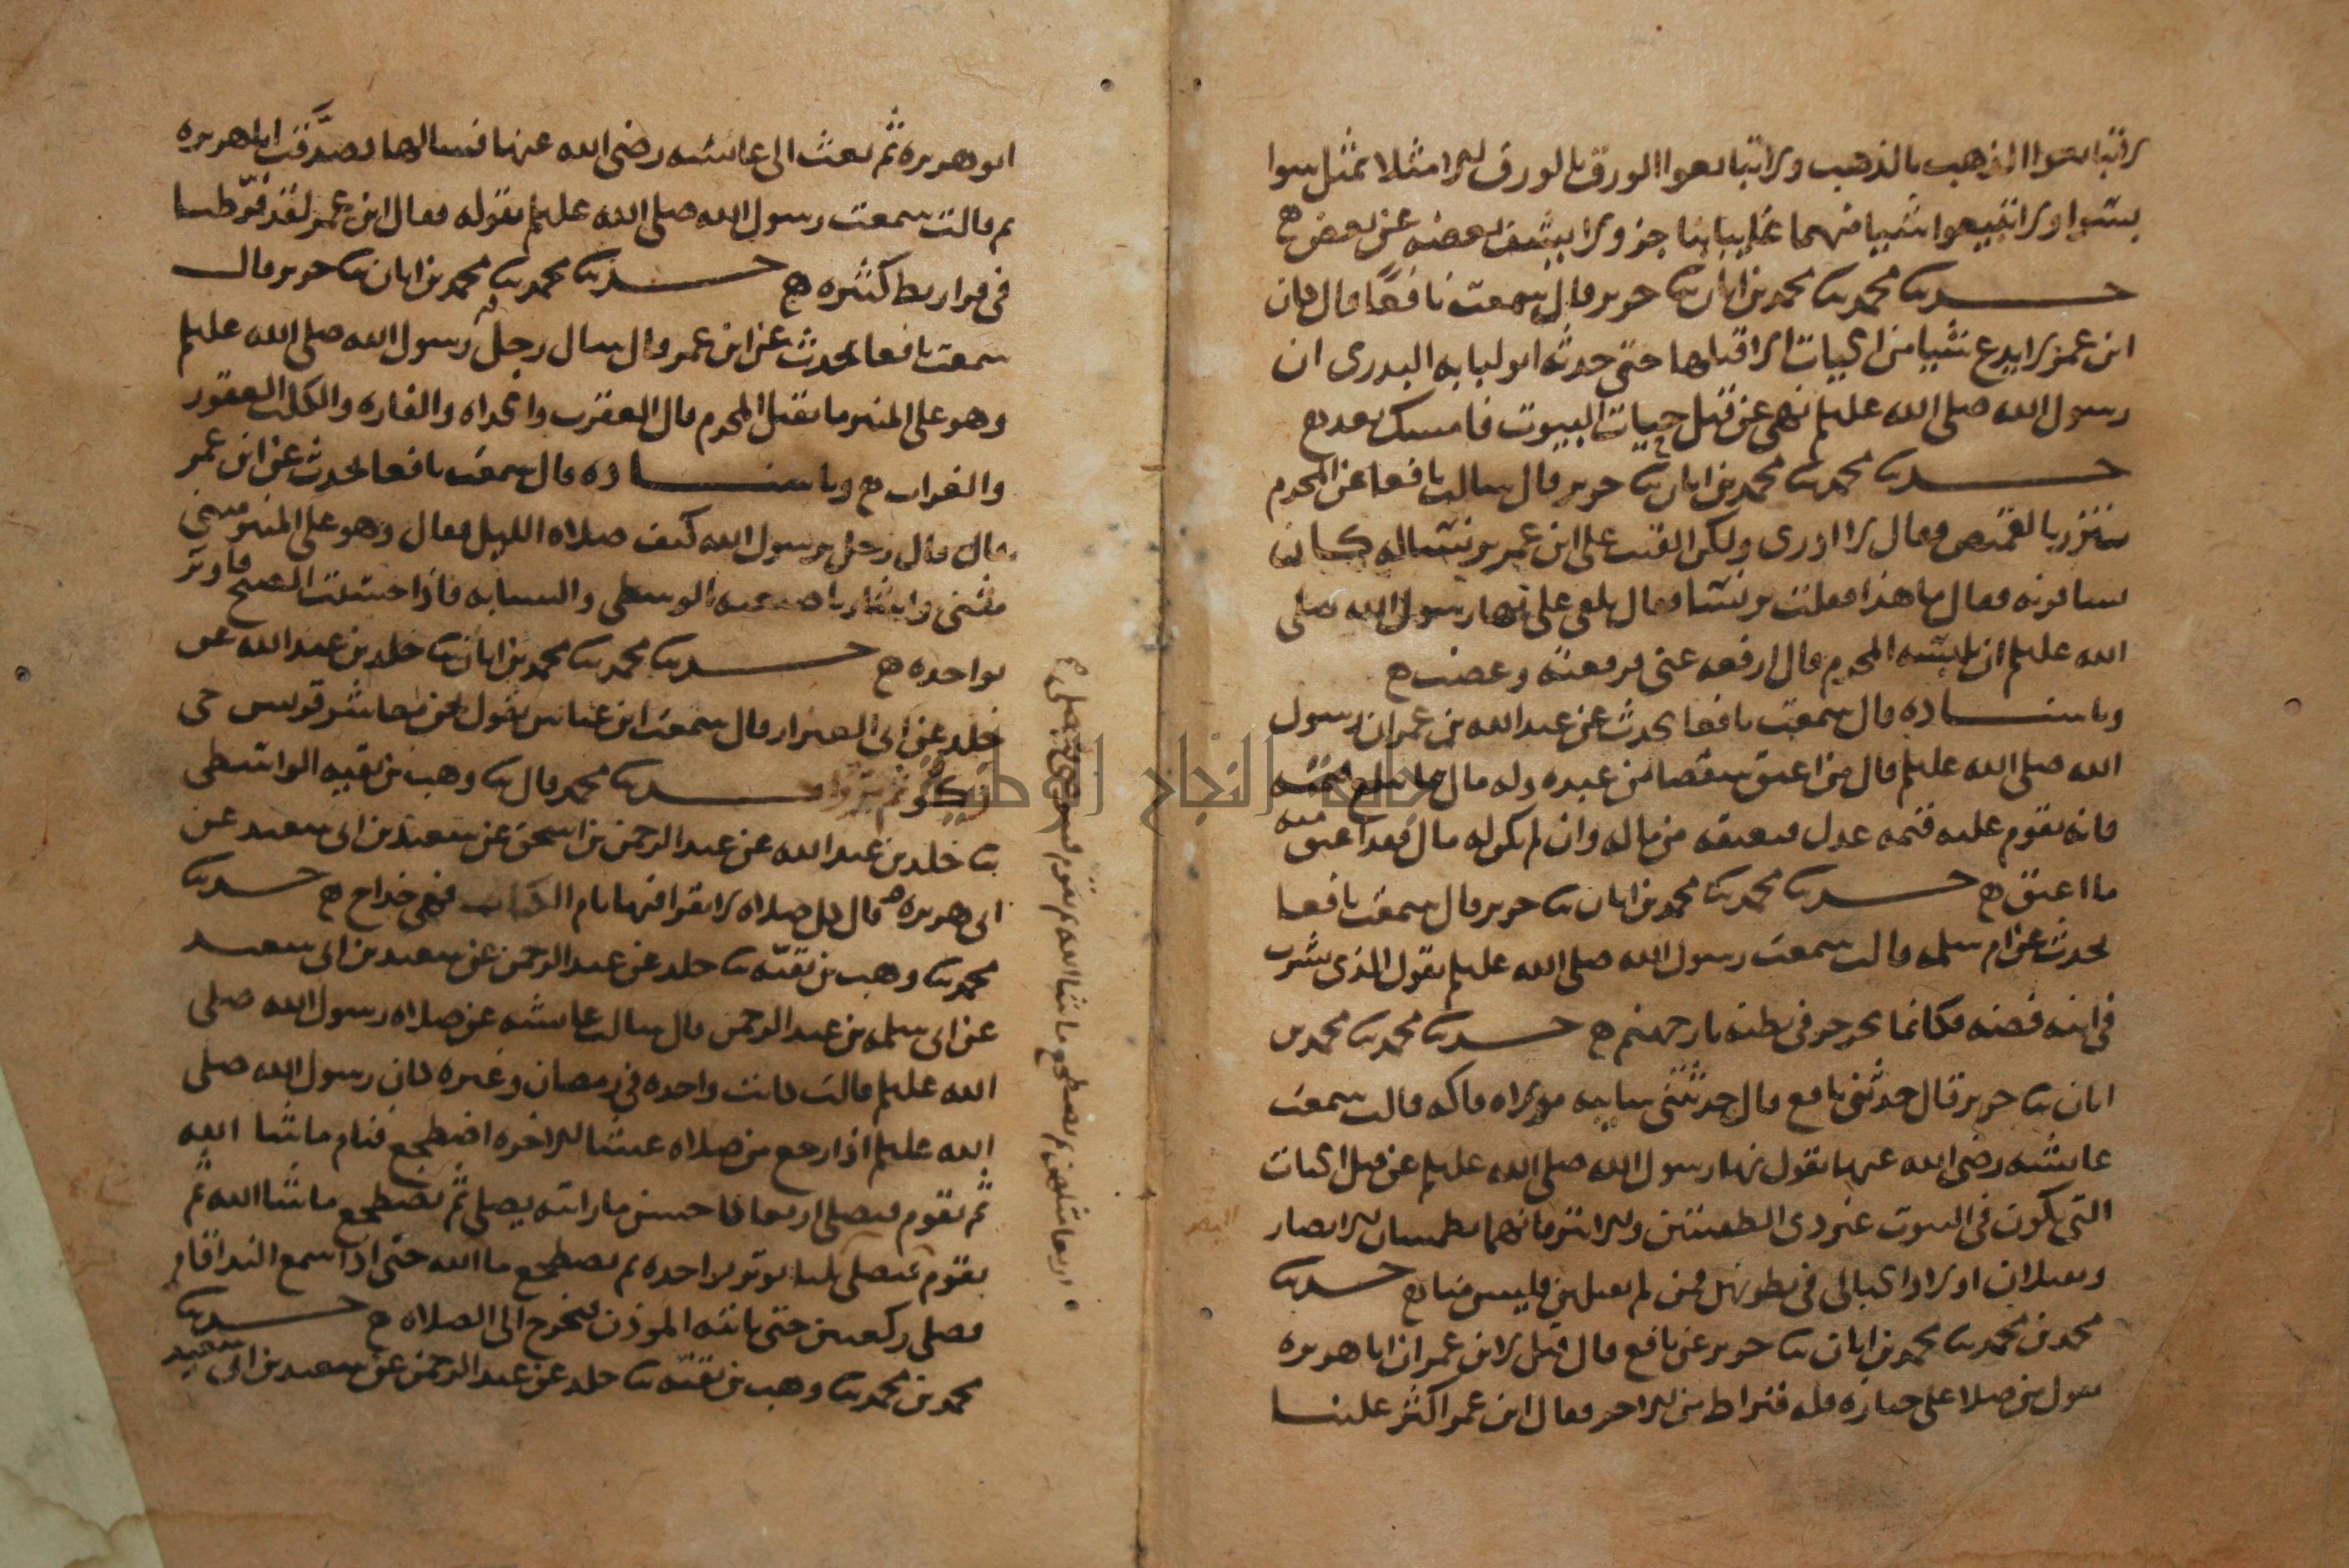 لا تبايعوا الذهب بالذهب ولا تبايعوا الورق بالورق الا مثلا بمثل سوا
بسوا ولا تبيعوا شيا منهما غايبا بناجز ولا يشف بعضه عن بعض ه
حدثنا محمد نا محمد بن ابان نا جرير قال سمعت نافعا قال كان
ابن عمر لا يدع شيا من الحيات الا قتلها حتى حدثه ابو لبابه البدري ان
رسول الله صلى الله عليه نهى عن قتل حيات البيوت فامسك بعد ه
حدثنا محمد نا محمد بن ابان نا جرير قال سالت نافعا عن المحرم
يتزر بالقميص فقال لا ادري ولكن القيت على ابن عمر برنسا له كان
فقال ما هذا فقلت برنسا فقال تلقي علي نها رسول الله صلى
الله عليه ان يلبسه المحرم قال ارفعه عني فرفعته وغضب ه
وباسناده قال سمعت نافعا يحدث عن عبد الله بن عمر ان رسول
الله صلى الله عليه قال من اعتق شقصا من عبده وله مال ما يبلغ قيمته
فانه يقوم عليه قيمه عدل فيعتقه من ماله وان لم يكن له مال فقد اعتق منه
ما اعتق ه حدثنا محمد نا محمد بن ابان نا جرير قال سمعت نافعا
يحدث عن ام سلمه قالت سمعت رسول الله صلى الله عليه يقول الذي يشرب
في انيه فضه فكانما يجرجر في بطنه نار جهنم ه حدثنا محمد نا محمد بن
ابان نا جرير قال حدثني نافع قال حدثتني سايبه مولاه فاكه قالت سمعت
عايشه رضي الله عنها تقول نها رسول الله صلى الله عليه عن قتل الحيات
التي تكون في البيوت غير ذي الطفيتين والابتر فانهما يطمسان الابصار
ويقتلان اولاد الحبالى في بطونهن فمن لم يقتلهن فليس منا ه حدثنا
محمد بن محمد نا محمد بن ابان نا جرير عن نافع قال قيل لابن عمر ان ابا هريره
يقول من صلا على جنازه فله قيراط من الاجر فقال ابن عمر اكثر علينا
ابو هريره ثم بعث الى عايشه رضي الله عنها فسالها فصدقت ابا هريره
ثم قالت سمعت رسول الله صلى الله عليه يقوله فقال ابن عمر لقد فرطنا
في قراريط كثيره ه حدثنا محمد نا محمد بن ابان نا جرير قال
سمعت نافعا يحدث عن ابن عمر قال سال رجل رسول الله صلى الله عليه
وهو على المنبر ما يقتل المحرم قال العقرب والحداه والفاره والكلب العقور
والغراب ه وباسناده قال سمعت نافعا يحدث عن ابن عمر
قال قال رجل يرسول الله كيف صلاه الليل فقال وهو على المنبر مثنى
مثنى واشار باصبعيه الوسطى والسبابه فاذا خشيت الصبح فاوتر
بواحده ه حدثنا محمد نا محمد بن ابان نا خلد بن عبد الله عن
خلد عن ابي العيزار قال سمعت ابن عباس يقول نحن معاشر قريش حي
حدثنا محمد قال نا وهب بن بقيه الواسطي
نا خلد بن عبد الله عن عبد الرحمن بن اسحق عن سعيد بن ابي سعيد عن
ابي هريره قال كل صلاه لا يقرا فيها بام الكتاب فهي خداج ه حدثنا
محمد نا وهب بن بقيه نا خلد عن عبد الرحمن عن سعيد بن ابي سعيد
عن ابي سلمه بن عبد الرحمن قال سالت عايشه عن صلاه رسول الله صلى
الله عليه قالت كانت واحده في رمضان وغيره كان رسول الله صلى
الله عليه اذا رجع من صلاه عشا الاخره اضطجع فنام ما شا الله
ثم يقوم فيصلي اربعا كاحسن ما رايته يصلي ثم يضطجع ما شا الله ثم
يقوم فيصلي ثلثا يوتر بواحده ثم يضطجع ما الله حتى اذا سمع الندا قام
فصلى ركعتين حتى ياتيه الموذن فيخرج الى الصلاه ه حدثنا
محمد بن محمد نا وهب بن بقيه نا خلد عن عبد الرحمن عن سعيد بن ابي سعيد
اربعا مثلهن ثم يضطجع ما شا الله ثم يقوم
جامعة النجاح الوطنية